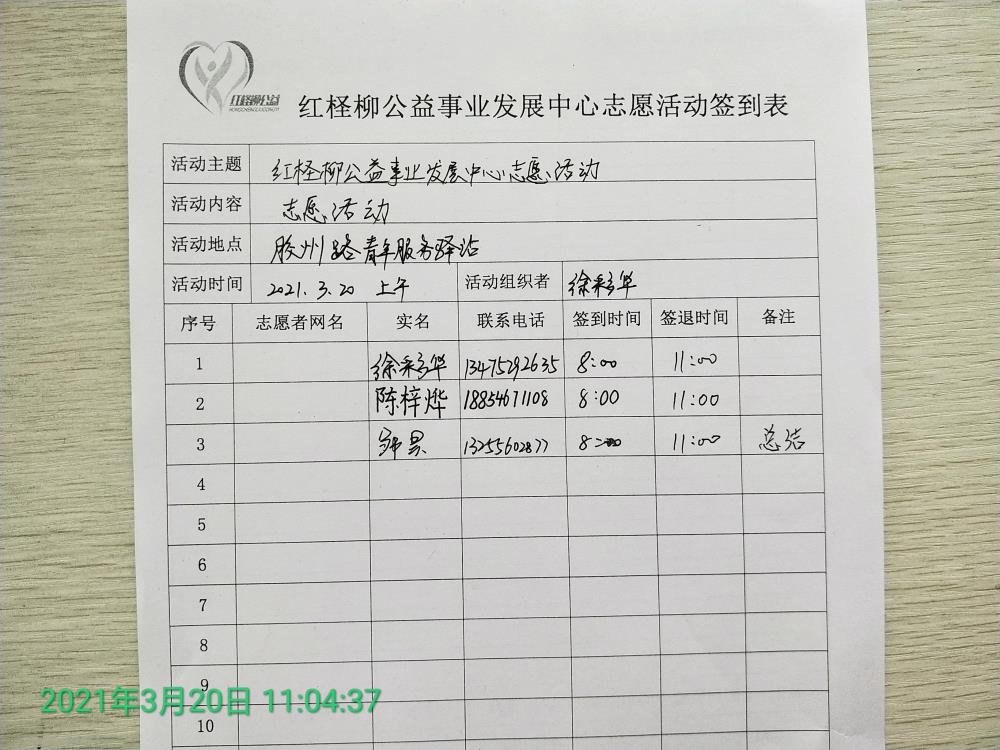 红柽柳公益
红柽柳公益事业发展中心志愿活动签到表
活动主题 红柽柳公益事业发展中心志愿活动
活动内容 志愿活动
活动地点 胶州路青年服务驿站
活动时间 2021.3.20 上午 活动组织者 徐彩华
序号 志愿者网名 实名 联系电话 签到时间 签退时间 备注
1 徐彩华 13475292635 8:00 11:00
2 陈梓烨 18854671108 8:00 11:00
3 13255602877 8:00 11:00 总结
4
5
6
7
8
9
2021年3月20日 11:04:37
10